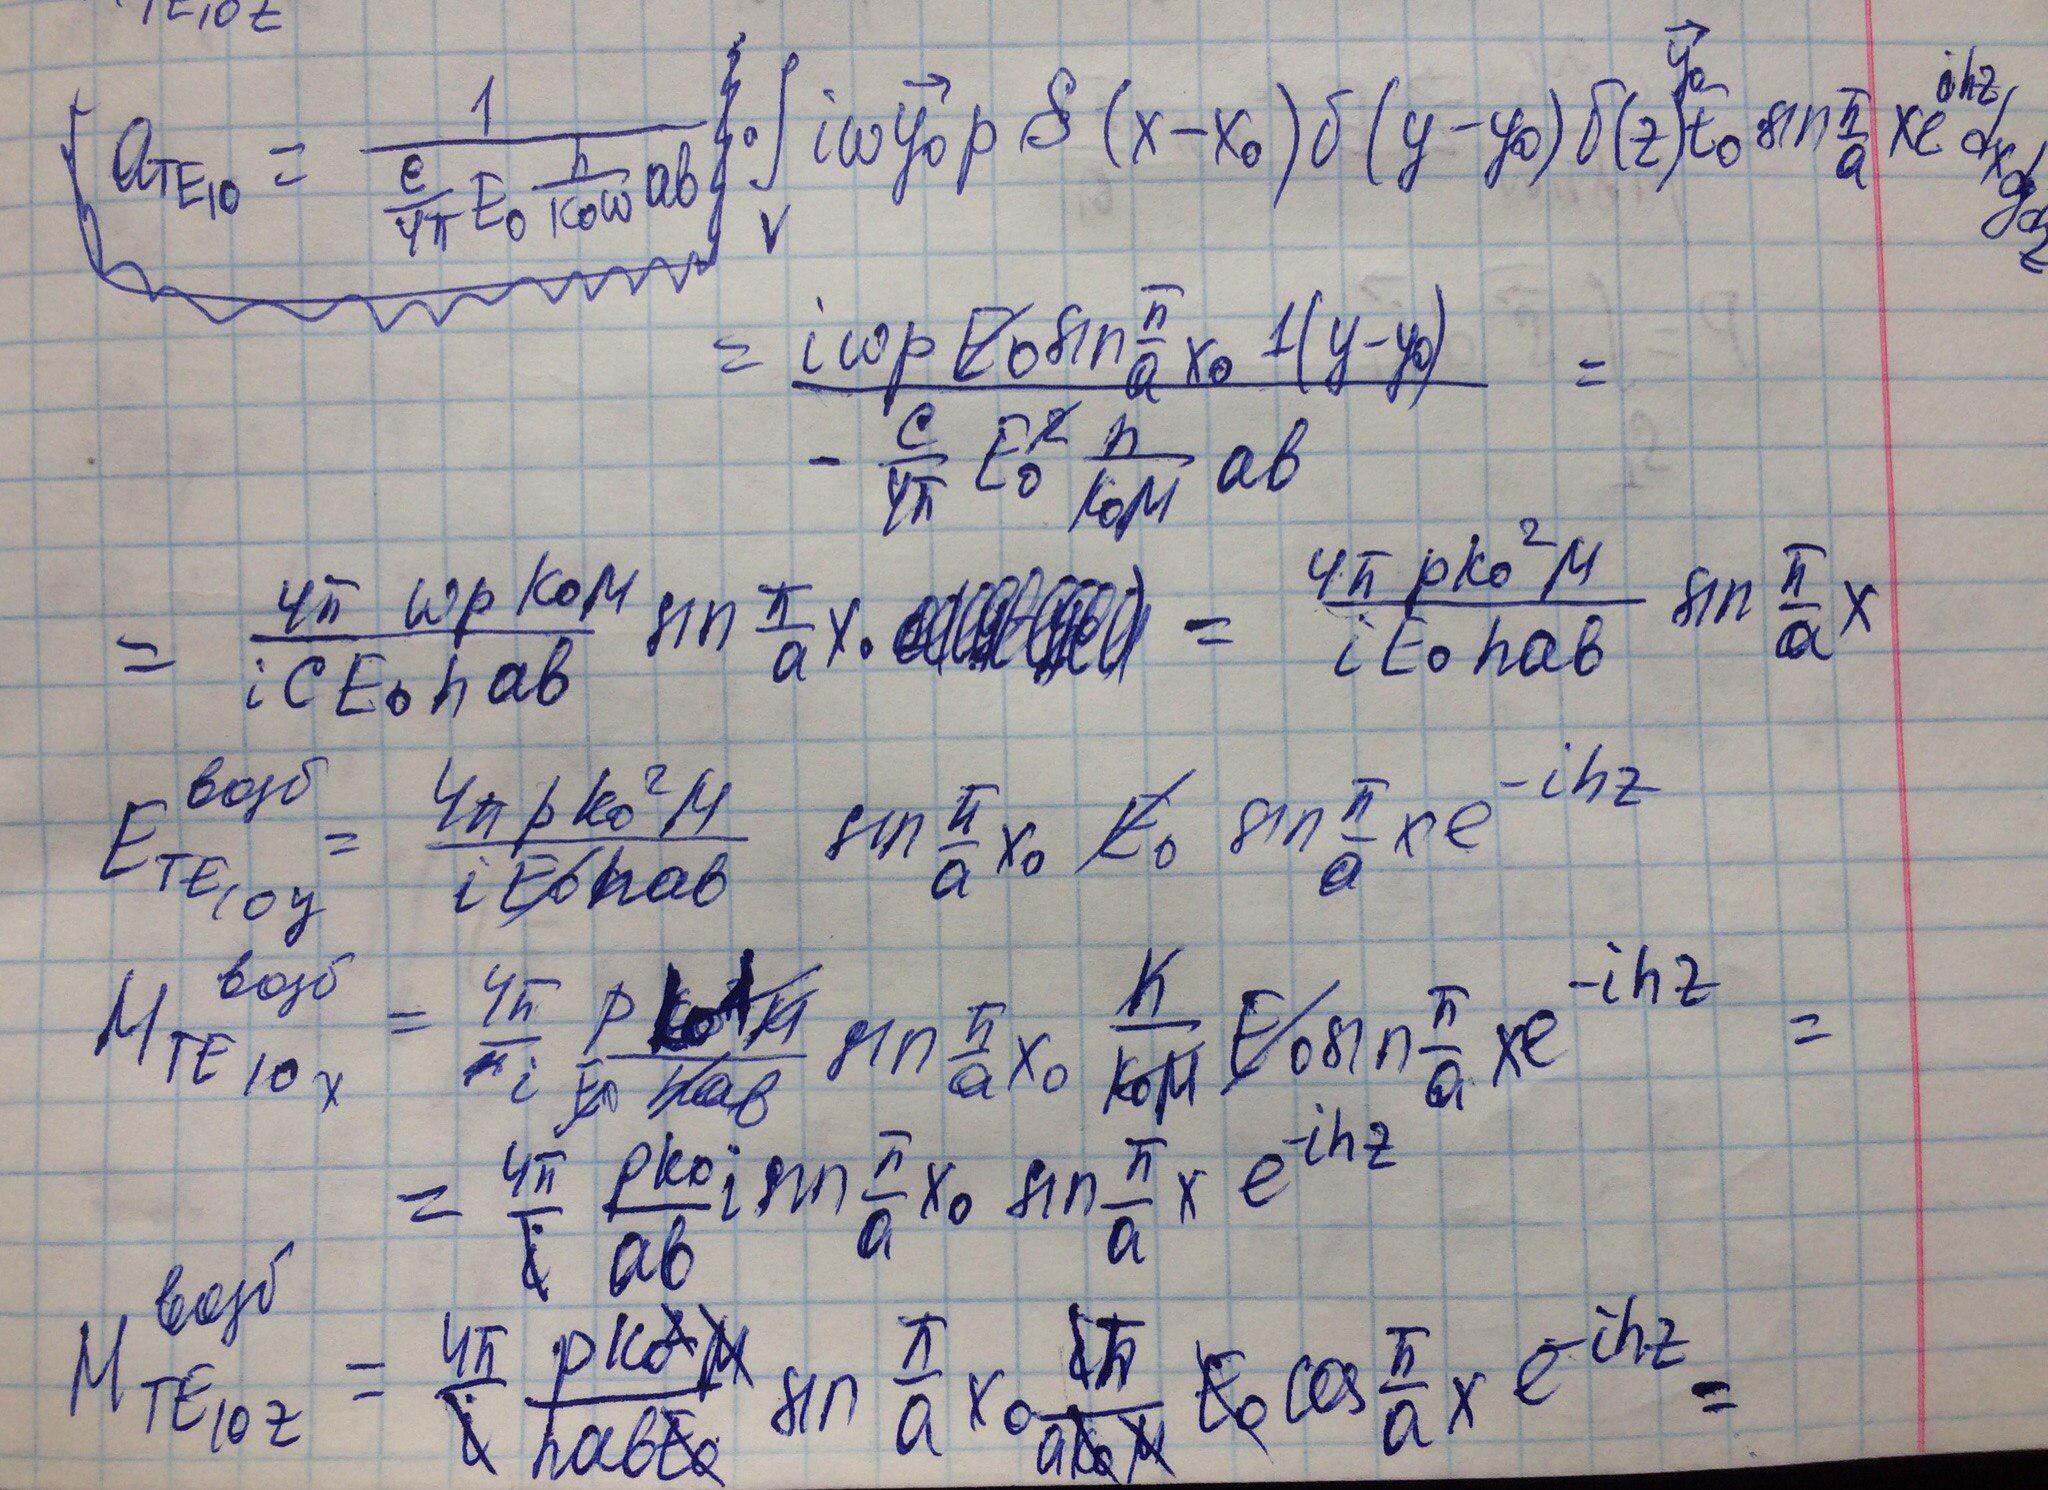 TE₁₀z
a_TE₁₀ = 1 / (c/4π E₀ h/k₀ω ab) ∫_V iω y⃗₀ p δ(x−x₀) δ(y−y₀) δ(z) y⃗₀ E₀ sin π/a x e^{ihz} dx dy dz
= iωp E₀ sin π/a x₀ 1(y−y₀) / (− c/4π E₀² h/k₀M ab) =
= 4π ωp k₀M / (i c E₀ h ab) sin π/a x₀ = 4π p k₀² M / (i E₀ h ab) sin π/a x
E^возб_TE₁₀y = 4π p k₀² M / (i E₀ h ab) sin π/a x₀ E₀ sin π/a x e^{−ihz}
M^возб_TE₁₀x = 4π/−i p k₀² M / (E₀ h ab) sin π/a x₀ h/k₀M E₀ sin π/a x e^{−ihz} =
= 4π/i p k₀/ab i sin π/a x₀ sin π/a x e^{−ihz}
M^возб_TE₁₀z = 4π/i p k₀² M / (h ab E₀) sin π/a x₀ iπ/(a k₀ M) E₀ cos π/a x e^{−ihz} =